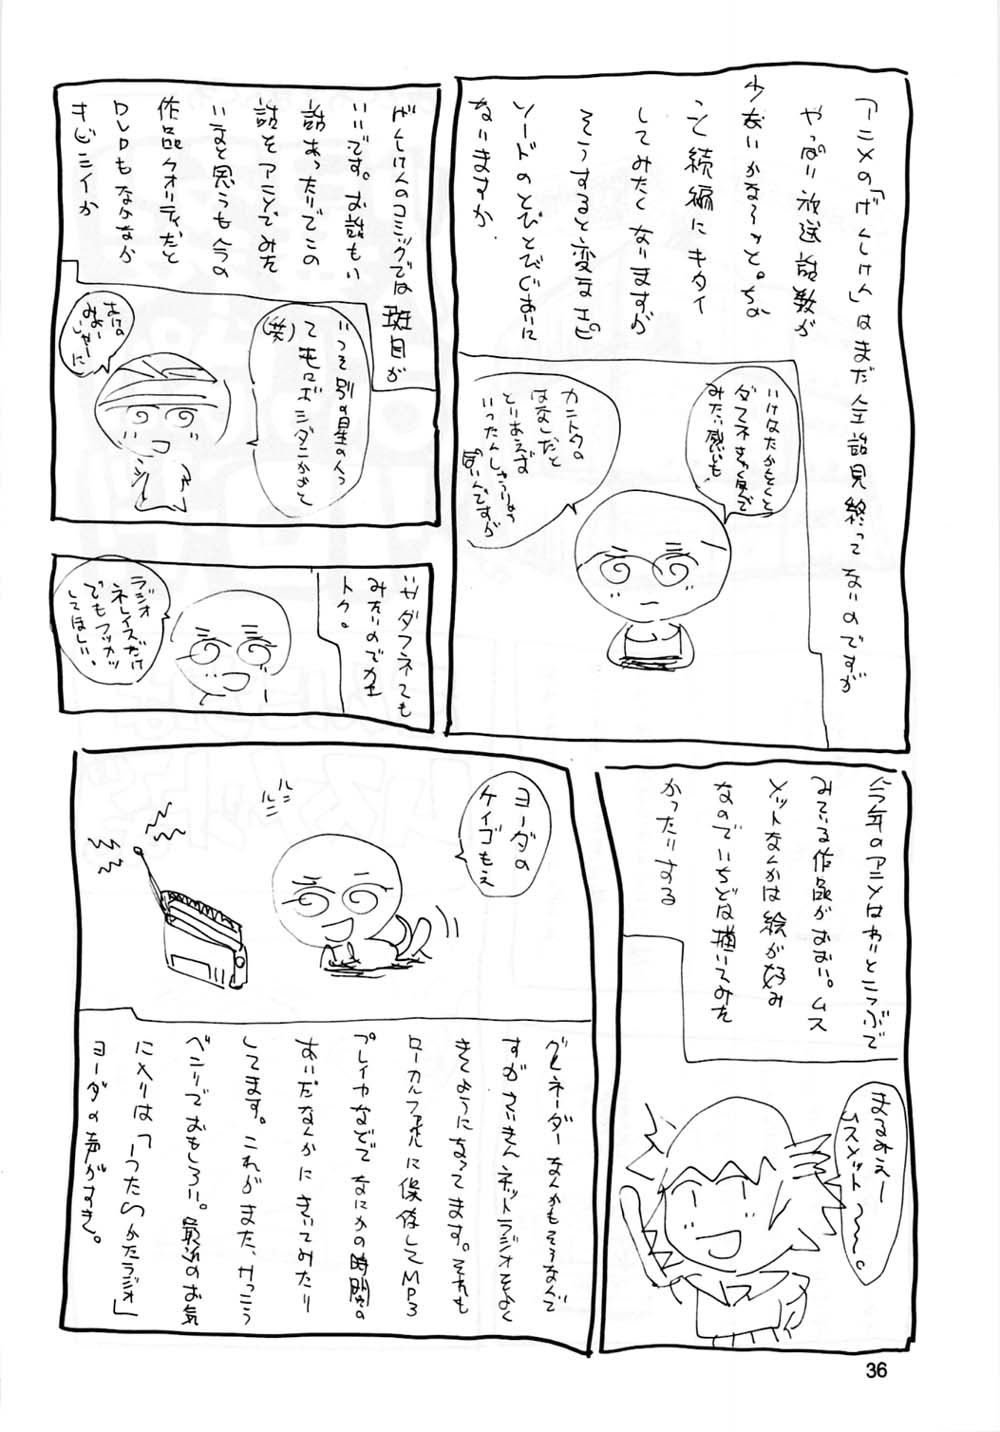 アニメの「げんしけん」はまだ全話見終ってないのですが
やっぱり放送話数が
少ないかな〜ッと。ちょ
こと続編にキタイ
してみたくなりますが
そうすると変なエピ
ソードのとびとびぐあいに
ないますか
ダフネ
みたい感じも
カントクの
はなしだと
とりあえず
いったんしゅうりょう
ぽいんですが
げんしけんのコミックでは斑目が
いいです。お話もい
話あったりでこの
話をアニメでみた
いまと思うも今の
作品クオリティだと
DVDもなかなか
キビシイか
いっそ別の星の人っ
て
(笑)
いやダフネても
みたいのでカエ
トク。
ラジオ
ネレイズだけ
でもフッカツ
してほしい。
今年のアニメはわりとこつぶで
みている作品がおおい。ムス
メットなんかは絵が好み
なのでいちどは描いてみた
かったりする
まるみえー
Sスメット〜〜。
ヨーダの
ケイゴもえ
グレネーダーなんかもそうなんで
すがさいきんネットラジオをよく
きくようになってます。それも
ローカルファイルに保存してMP3
プレイヤなどでなにかの時間の
あいだなんかにきいてみたり
してます。これがまた、けっこう
ベンリでおもしろい。最近のお気
に入りは「うたわれ
かたラジオ」
ヨーダの声がすき。
36